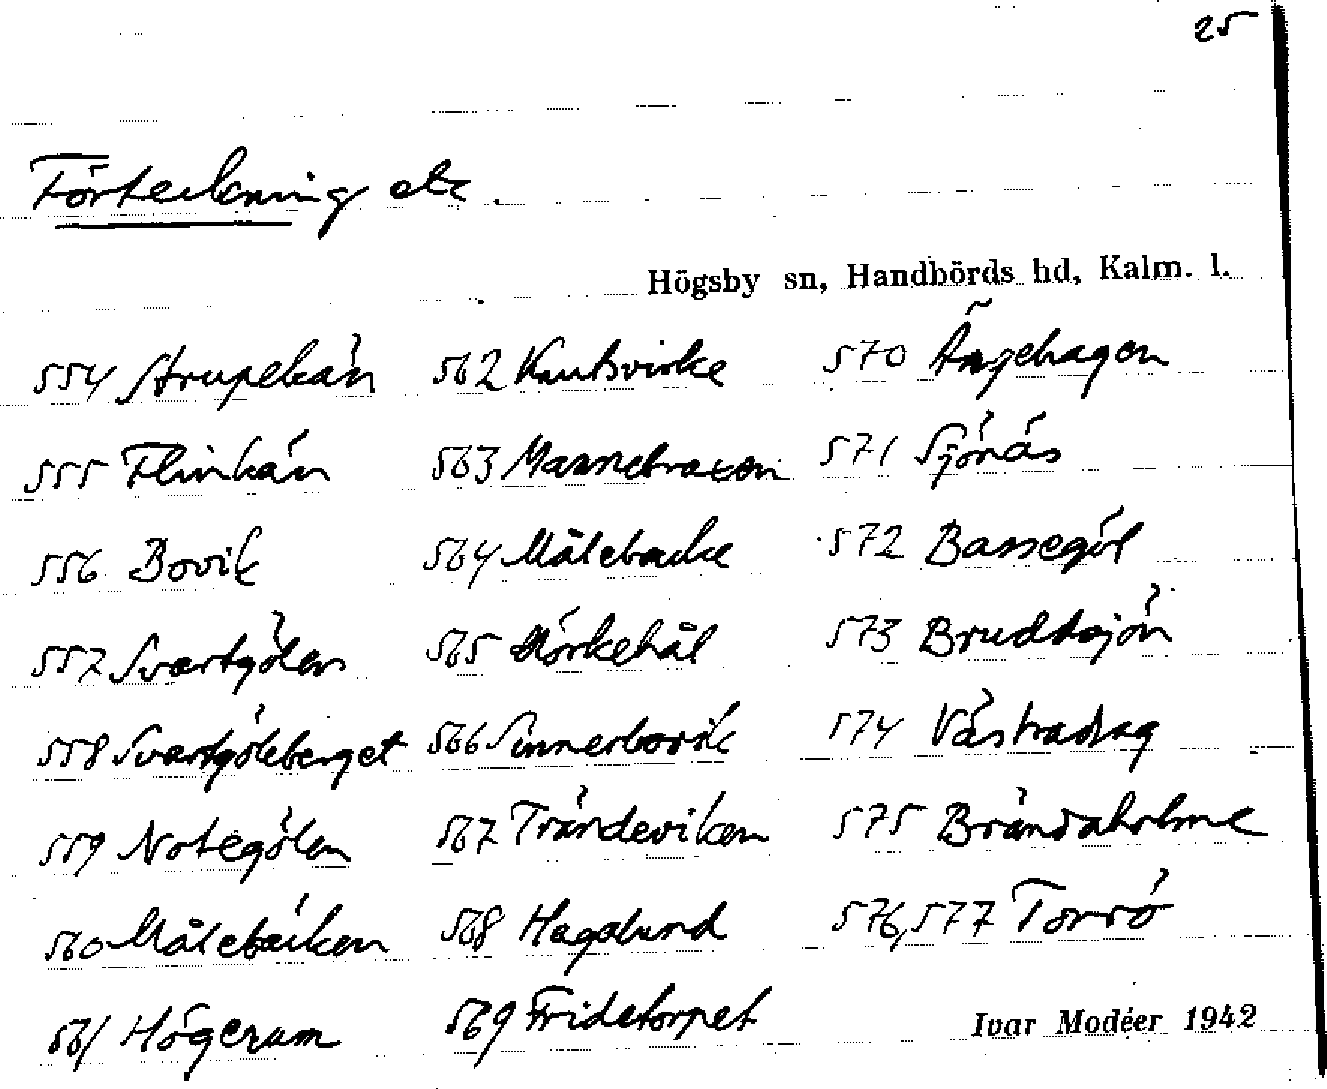 25
Förteckning etc.
Högsby sn, Handbörds hd, Kalm. l.
554 Strupekän 562 Knutsvirke 570 Ängehagen
555 Flinkän 563 Mannebraxen 571 Sjönäs
556 Bovik 564 Målebacke 572 Bassegöl
557 Svartgölen 565 Mörkehål 573 Brudtsjön
558 Svartgöleberget 566 Sinnerbovik 574 Västradrag
559 Notegölen 567 Trändeviken 575 Brändaholme
560 Målebäcken 568 Hagalund 576, 577 Torrö
561 Högerum 569 Fridetorpet
Ivar Modéer 1942